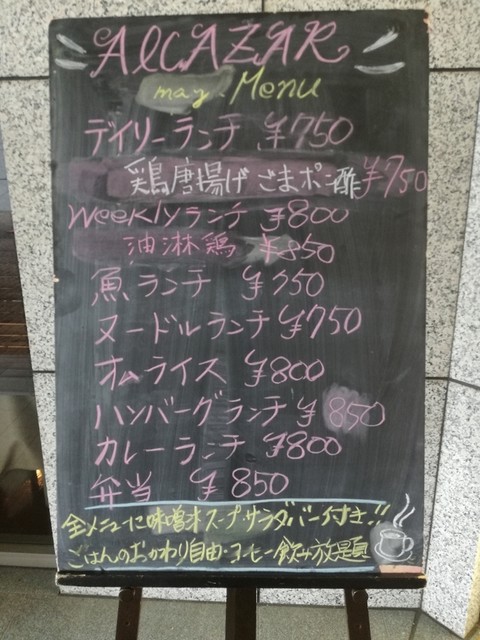 ALCAZAR
may. Menu
デイリーランチ ¥750
鶏唐揚げ ごまポン酢 ¥750
Weeklyランチ ¥800
油淋鶏 ¥850
魚ランチ ¥750
ヌードルランチ ¥750
オムライス ¥800
ハンバーグランチ ¥850
カレーランチ ¥800
弁当 ¥850
全メニューに味噌汁スープ・サラダバー付き!!
ごはんのおかわり自由・コーヒー飲み放題